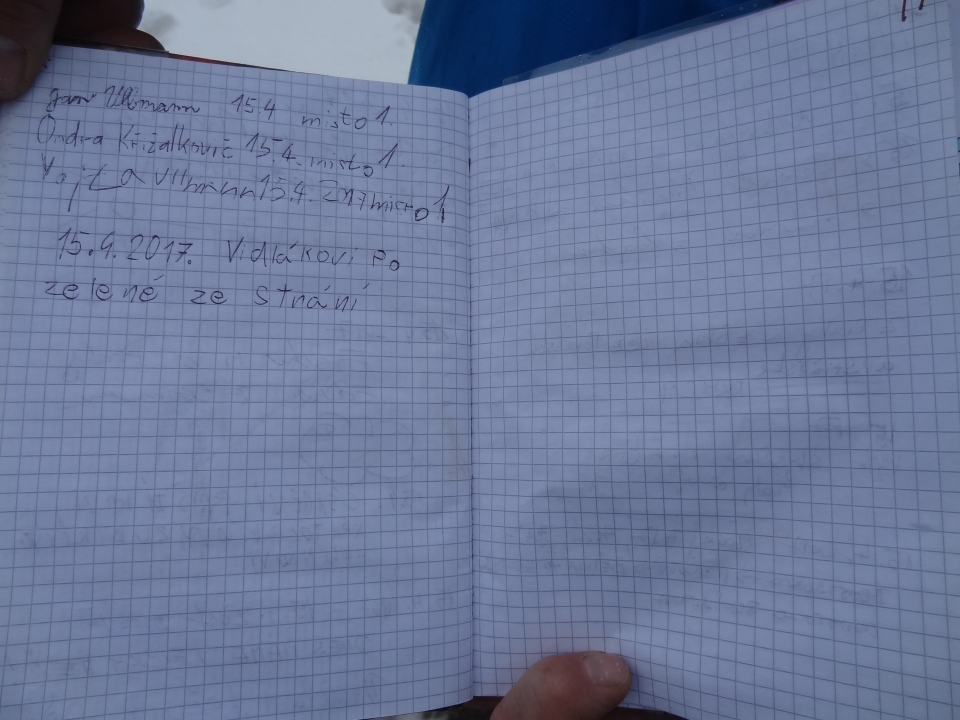 Jan Ullmann 15.4 misto 1.
Ondra Křižalkovič 15.4. misto 1.
Vojta Ullmann 15.4. 2017 misto 1
15.4.2017. Vidlákovi Po
zelené ze strání